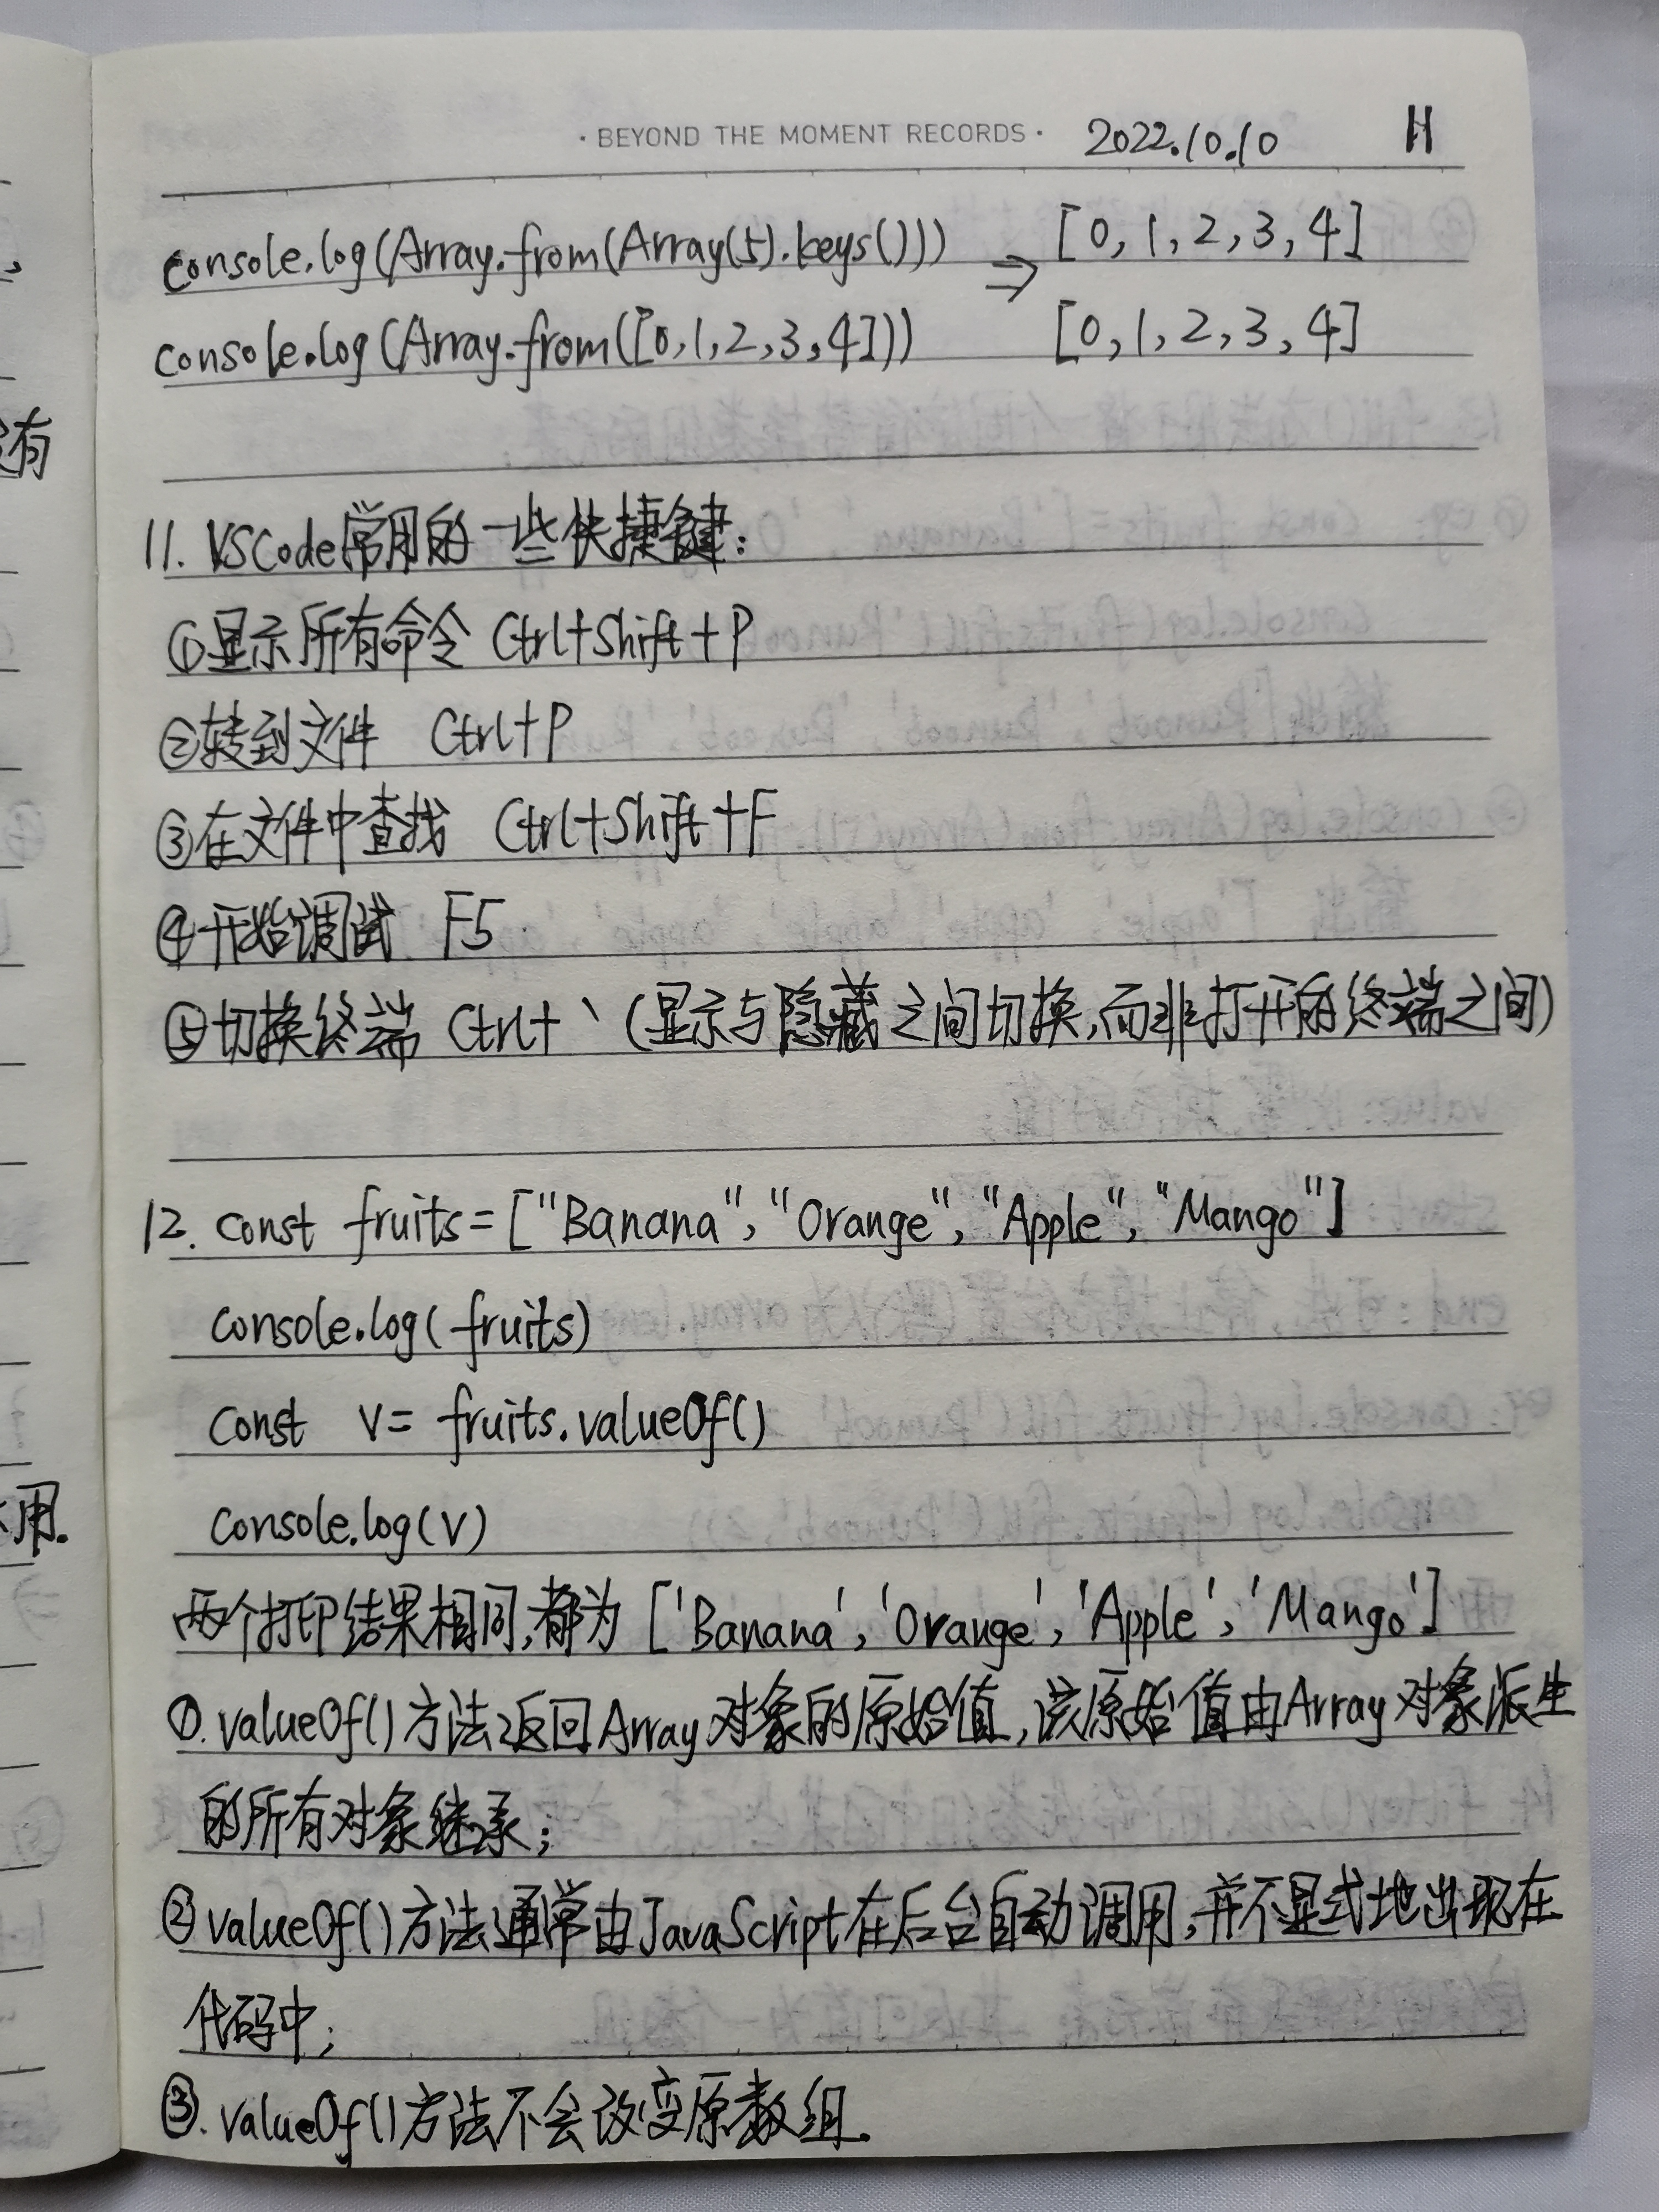 · BEYOND THE MOMENT RECORDS · 2022.10.10 11
console.log(Array.from(Array(5).keys())) ⇒ [0, 1, 2, 3, 4]
console.log(Array.from([0,1,2,3,4])) [0, 1, 2, 3, 4]
11. VSCode常用的一些快捷键:
①显示所有命令 Ctrl+Shift+P
②转到文件 Ctrl+P
③在文件中查找 Ctrl+Shift+F
④开始调试 F5
⑤切换终端 Ctrl+` (显示与隐藏之间切换,而非打开的终端之间)
12. const fruits=["Banana", "Orange", "Apple", "Mango"]
console.log(fruits)
const v= fruits.valueOf()
console.log(v)
两个打印结果相同,都为 ['Banana', 'Orange', 'Apple', 'Mango']
①.valueOf()方法返回Array对象的原始值,该原始值由Array对象派生
的所有对象继承;
②valueOf()方法通常由JavaScript在后台自动调用,并不显式地出现在
代码中;
③.valueOf()方法不会改变原数组.
有
用.